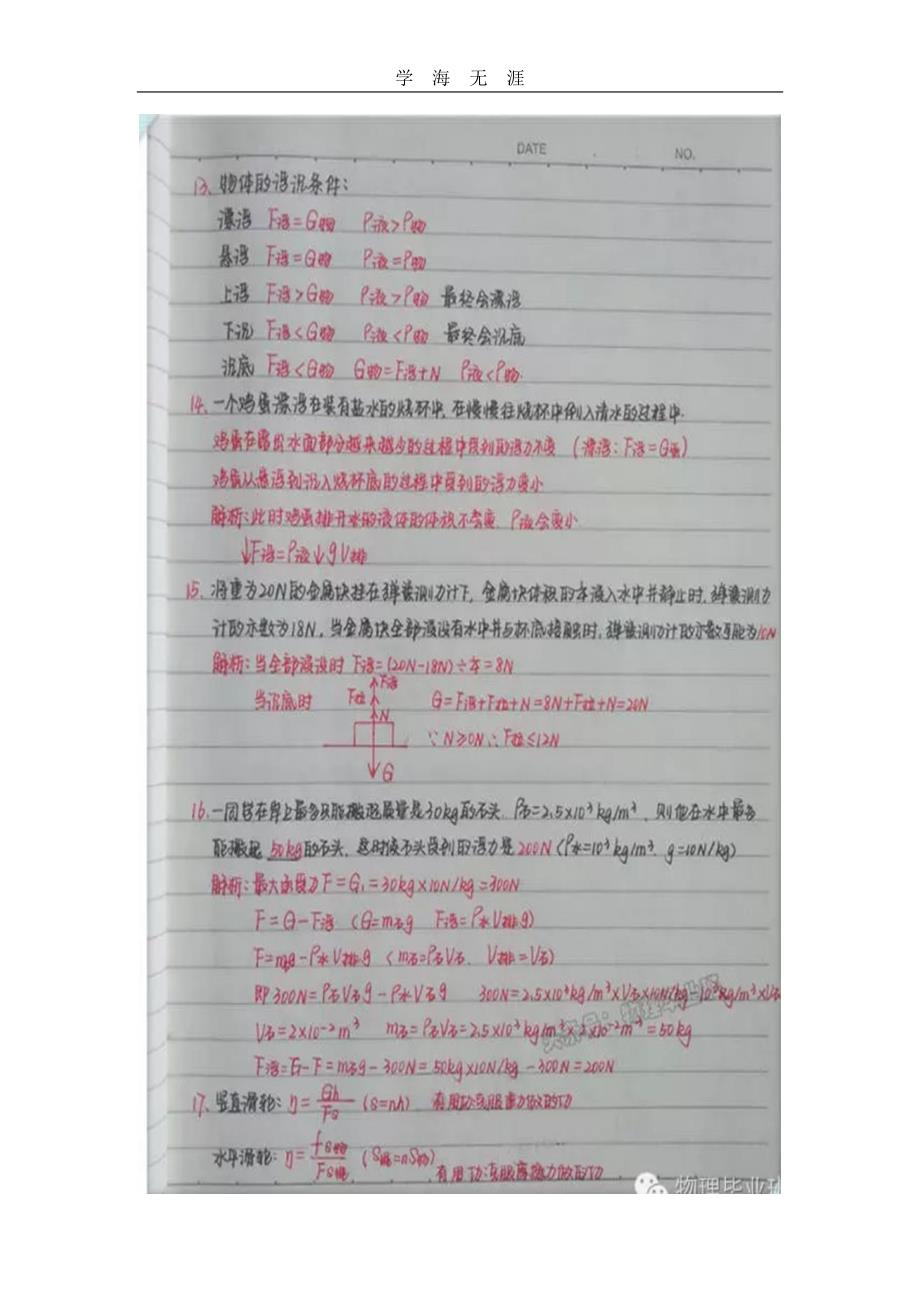 学 海 无 涯
DATE
NO.
13、物体的浮沉条件:
漂浮 F浮=G物 ρ液>ρ物
悬浮 F浮=G物 ρ液=ρ物
上浮 F浮>G物 ρ液>ρ物 最终会漂浮
下沉 F浮<G物 ρ液<ρ物 最终会沉底
沉底 F浮<G物 G物=F浮+N ρ液<ρ物.
14、一个鸡蛋漂浮在装有盐水的烧杯中,在慢慢往烧杯中倒入清水的过程中.
鸡蛋在露出水面部分越来越少的过程中受到的浮力不变 (漂浮:F浮=G蛋)
鸡蛋从悬浮到沉入烧杯底的过程中受到的浮力变小
解析:此时鸡蛋排开水的液体的体积不会变. ρ液会变小
↓F浮=ρ液↓gV排
15、将重为20N的金属块挂在弹簧测力计下, 金属块体积的本浸入水中并静止时,弹簧测力
计的示数为18N, 当金属块全部浸没有水中并与杯底接触时,弹簧测力计的示数可能为10N
解析:当全部浸没时 F浮=(20N-18N)÷本=8N
当沉底时
F拉
F浮
N
G
G=F浮+F拉+N=8N+F拉+N=20N
∵N≥0N∴F拉≤12N
16、一同学在岸上最多只能搬起质量是30kg的石头. ρ石=2.5×10³kg/m³, 则他在水中最多
能搬起 50kg的石头, 这时候石头受到的浮力是 200N (ρ水=10³kg/m³. g=10N/kg)
解析:最大的受力F=G₁=30kg×10N/kg=300N
F=G-F浮 (G=m石g F浮=ρ水V排g)
F=m石g-ρ水V排g (m石=ρ石V石. V排=V石)
即 300N=ρ石V石g-ρ水V石g 300N=2.5×10³kg/m³×V石×10N/kg-10³kg/m³×V石
V石=2×10⁻²m³ m石=ρ石V石=2.5×10³kg/m³×2×10⁻²m³=50kg
F浮=G-F=m石g-300N=50kg×10N/kg-300N=200N
17、竖直滑轮:η=Gh/Fs (s=nh) 有用功:克服重力做的功
水平滑轮:η=fs物/Fs绳 (S绳=nS物) 有用功:克服摩擦力做的功
物理毕业班